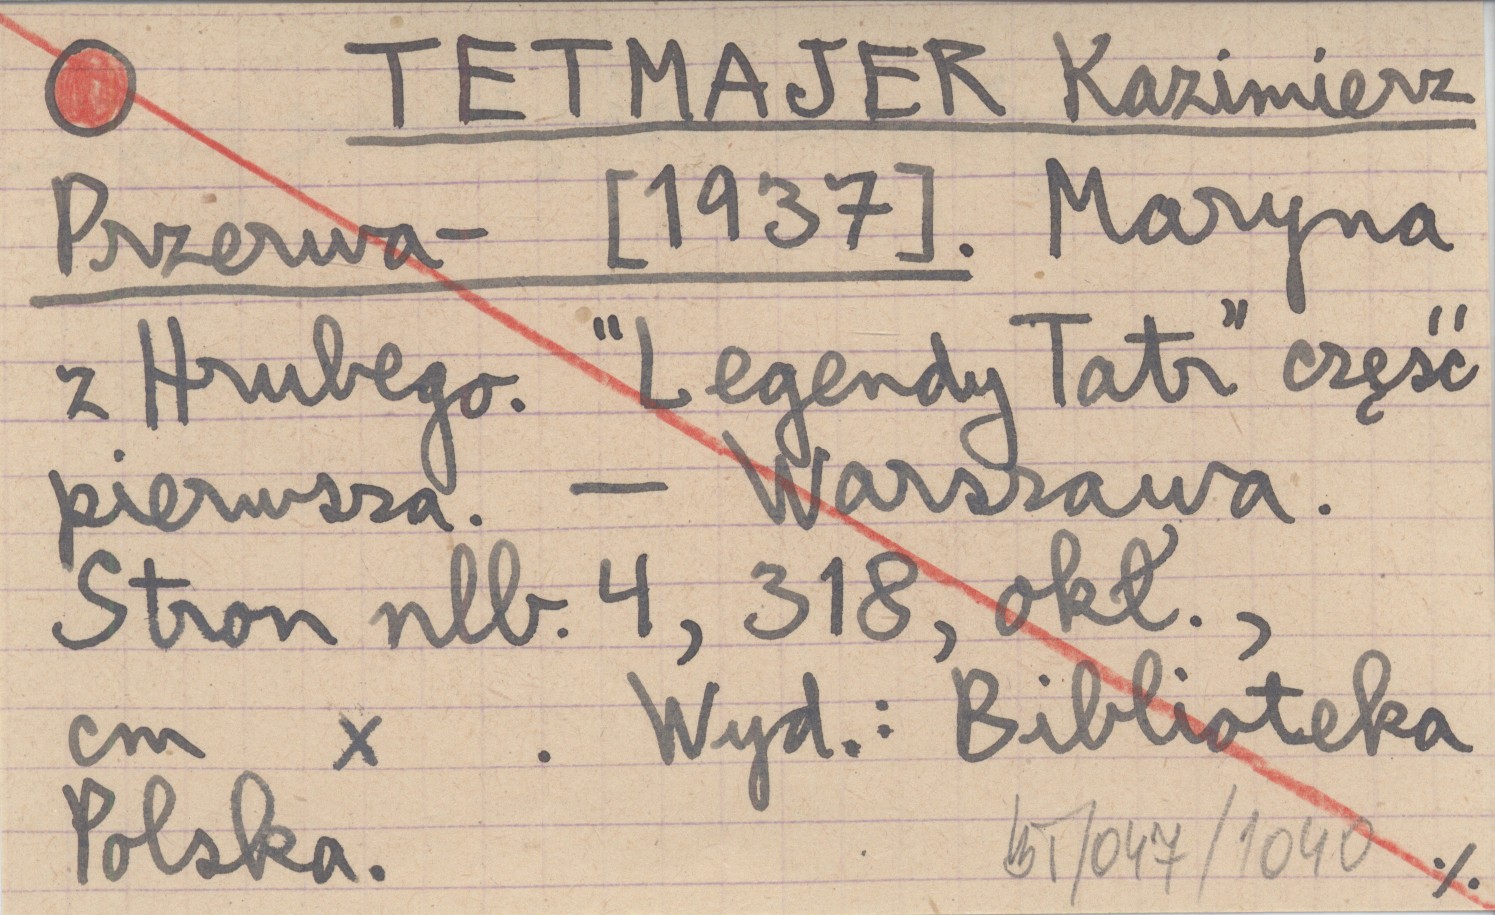 TETMAJER Kazimierz
Przerwa- [1937]. Maryna
z Hrubego. "Legendy Tatr" część
pierwsza. — Warszawa.
Stron nlb. 4, 318, okł.,
cm x . Wyd.: Biblioteka
Polska.
/047/1040 ./.